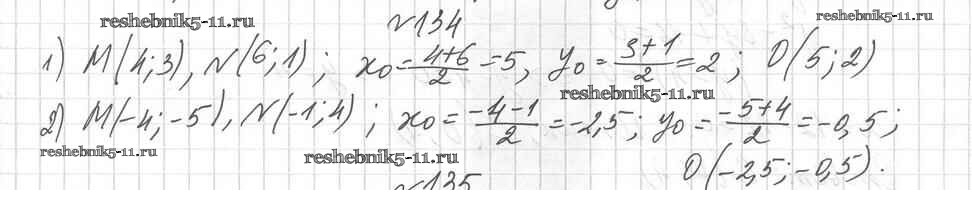 reshebnik5-11.ru
N134
reshebnik5-11.ru
1) M(4;3), N(6;1); x₀=4+6/2=5, y₀=3+1/2=2; O(5;2)
reshebnik5-11.ru
2) M(-4;-5), N(-1;4); x₀=-4-1/2=-2,5; y₀=-5+4/2=-0,5;
reshebnik5-11.ru
reshebnik5-11.ru
O(-2,5;-0,5).
N135